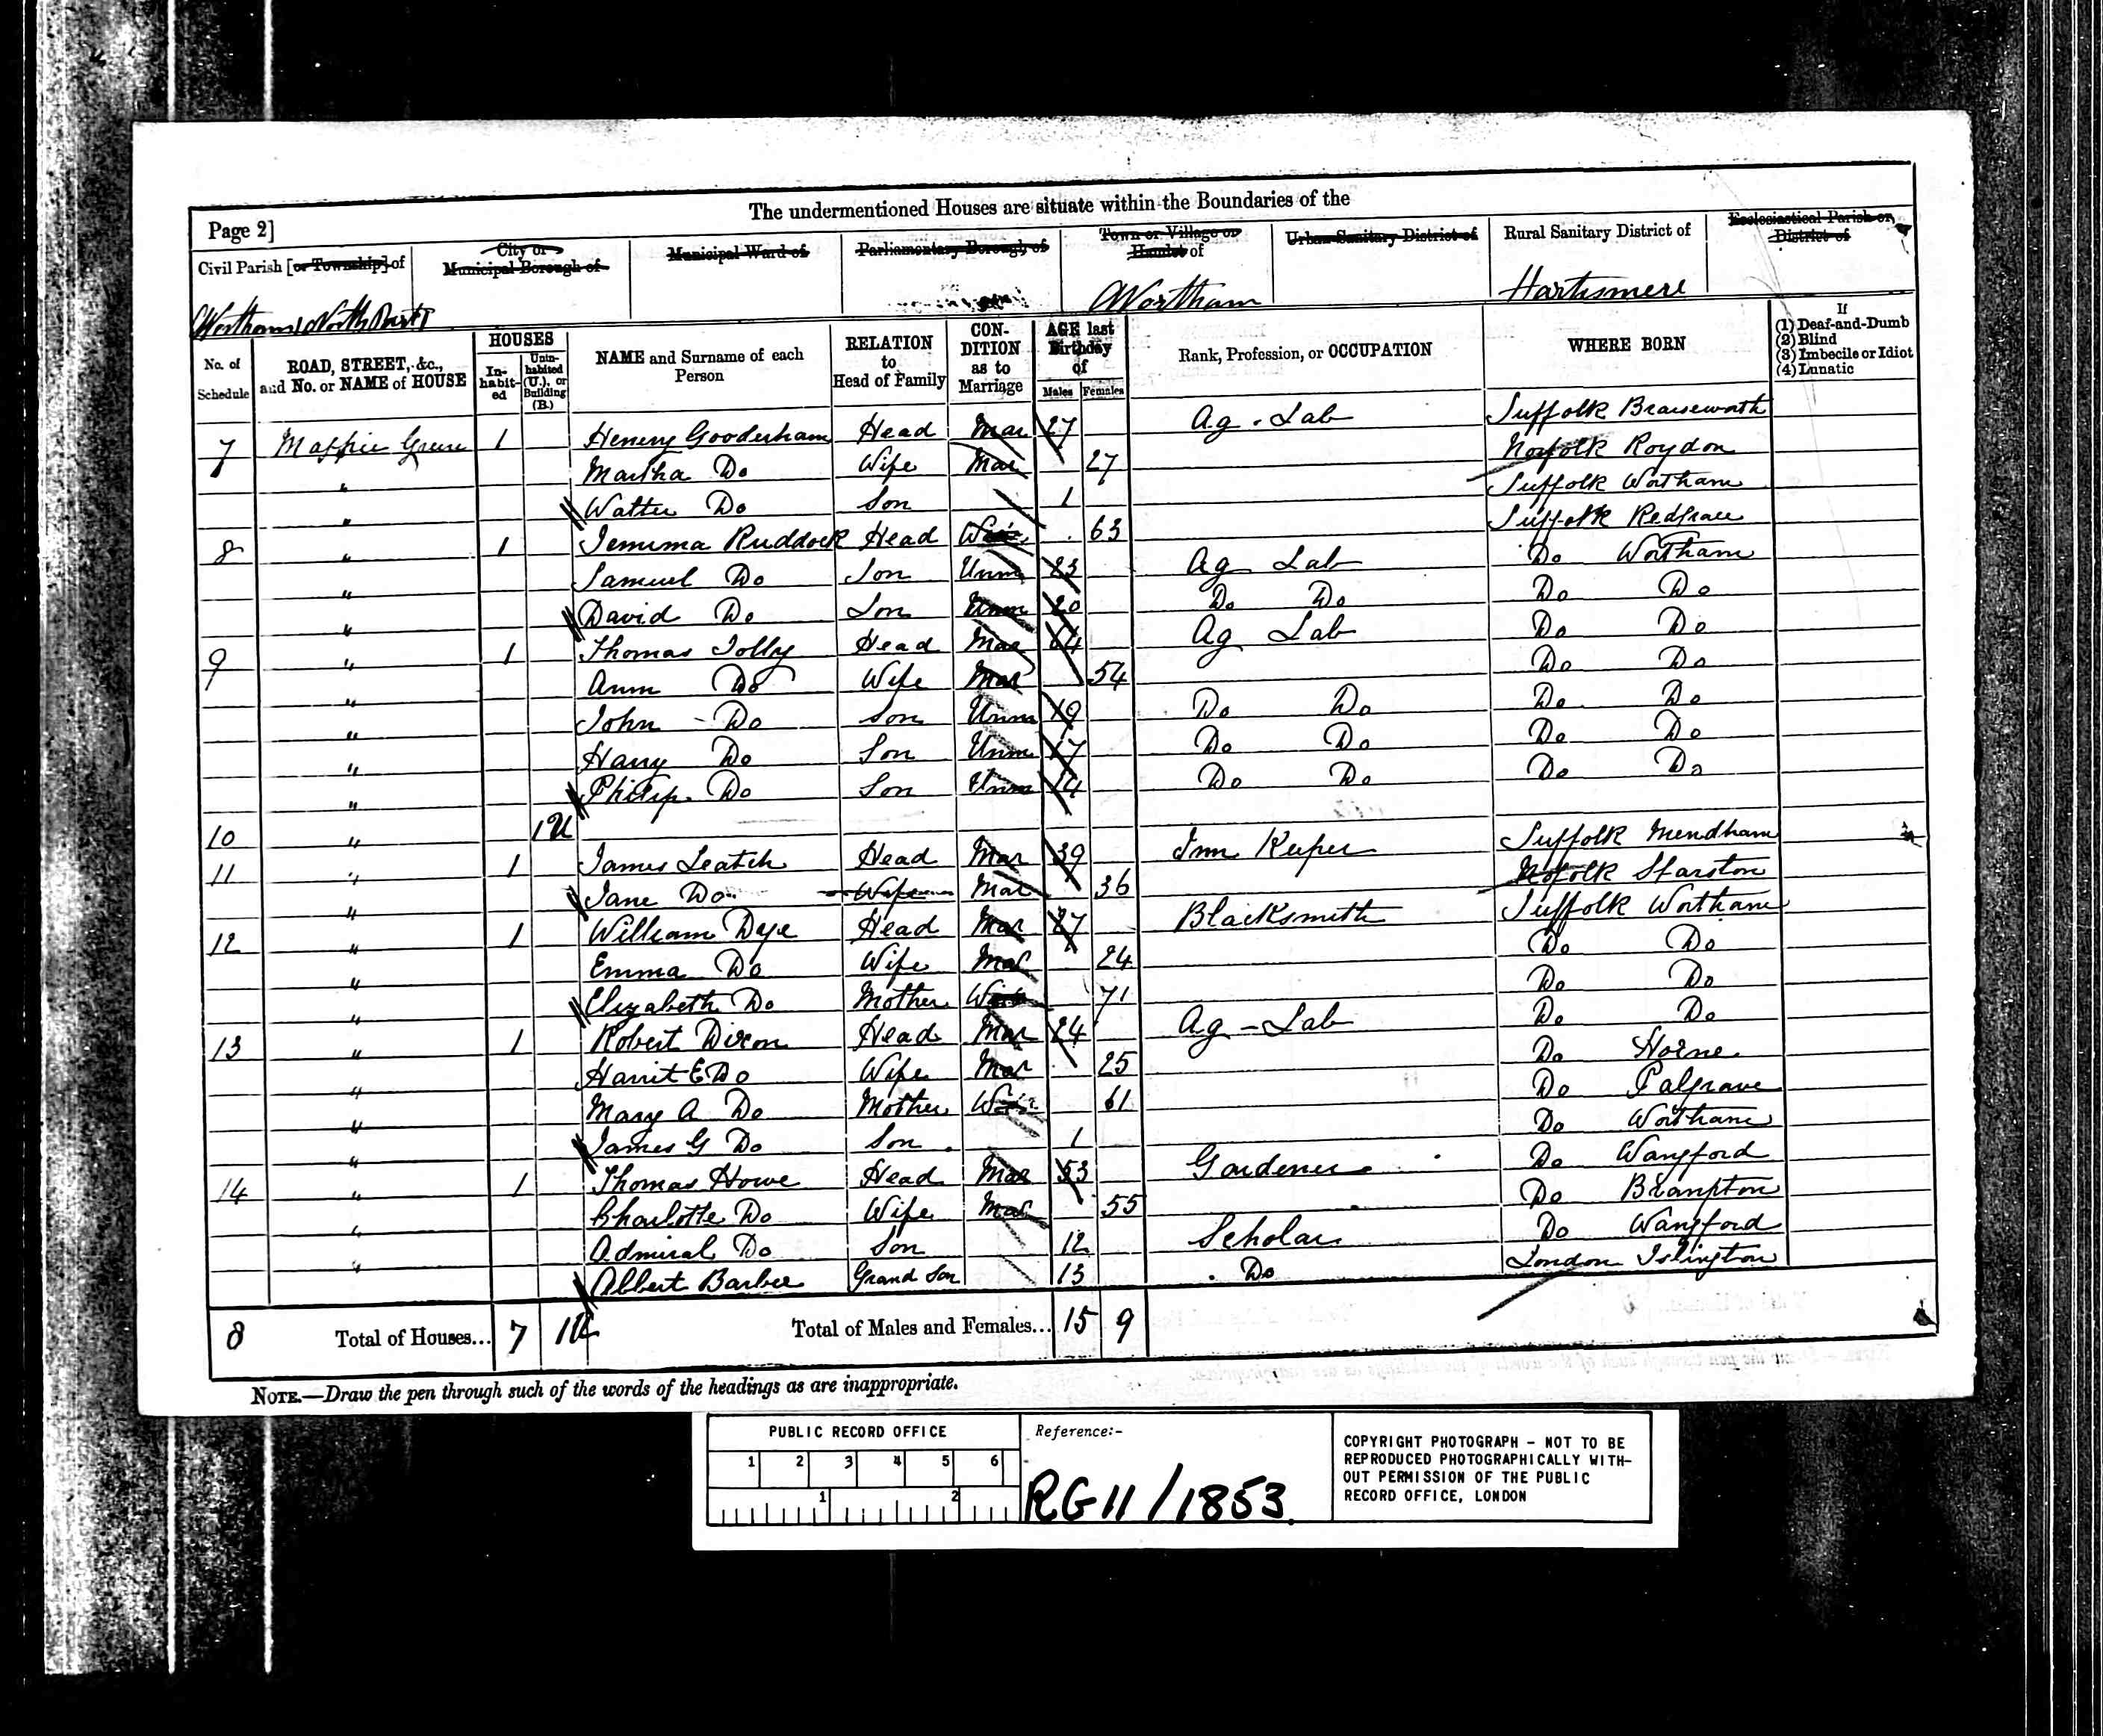 The undermentioned Houses are situate within the Boundaries of the
Page 2]
Civil Parish [or Township] of
City or Municipal Borough of
Municipal Ward of
Parliamentary Borough of
Town or Village or Hamlet of
Urban Sanitary District of
Rural Sanitary District of
Ecclesiastical Parish or District of
Wortham North Part Wortham Hartismere
No. of Schedule
ROAD, STREET, &c., and No. or NAME of HOUSE
HOUSES
In-habit-ed
Unin-habited (U.), or Building (B.)
NAME and Surname of each Person
RELATION to Head of Family
CON-DITION as to Marriage
AGE last Birthday of
Males Females
Rank, Profession, or OCCUPATION
WHERE BORN
If
(1) Deaf-and-Dumb
(2) Blind
(3) Imbecile or Idiot
(4) Lunatic
7 Magpie Green 1 Henery Gooderham Head Mar 27 Ag. Lab Suffolk Braiseworth
" Martha Do Wife Mar 27 Norfolk Roydon
" Walter Do Son 1 Suffolk Wortham
8 " 1 Jemima Ruddock Head Wid 63 Suffolk Redgrave
" Samuel Do Son Unm 23 Ag Lab Do Wortham
" David Do Son Unm 20 Do Do Do Do
9 " 1 Thomas Jolly Head Mar 64 Ag Lab Do Do
" Ann Do Wife Mar 54 Do Do
" John Do Son Unm 19 Do Do Do Do
" Harry Do Son Unm 17 Do Do Do Do
" Philip Do Son Unm 14 Do Do Do Do
10 " 1U
11 " 1 James Leatch Head Mar 39 Inn Keeper Suffolk Mendham
" Jane Do Wife Mar 36 Norfolk Starston
12 " 1 William Dye Head Mar 27 Blacksmith Suffolk Wortham
" Emma Do Wife Mar 24 Do Do
" Elizabeth Do Mother Wid 71 Do Do
13 " 1 Robert Dixon Head Mar 24 Ag - Lab Do Do
" Harrit E Do Wife Mar 25 Do
" Mary A Do Mother Wid 61 Do Palgrave
" James G Do Son 1 Do Wortham
14 " 1 Thomas Howe Head Mar 53 Gardener Do Wangford
" Charlotte Do Wife Mar 55 Do Brampton
" Admiral Do Son 12 Scholar Do Wangford
Albert Barber Grand Son 13 Do London Islington
8 Total of Houses... 7 1U Total of Males and Females... 15 9
NOTE.—Draw the pen through such of the words of the headings as are inappropriate.
PUBLIC RECORD OFFICE
1 2 3 4 5 6
1 2
Reference:-
RG11/1853
COPYRIGHT PHOTOGRAPH - NOT TO BE
REPRODUCED PHOTOGRAPHICALLY WITH-
OUT PERMISSION OF THE PUBLIC
RECORD OFFICE, LONDON